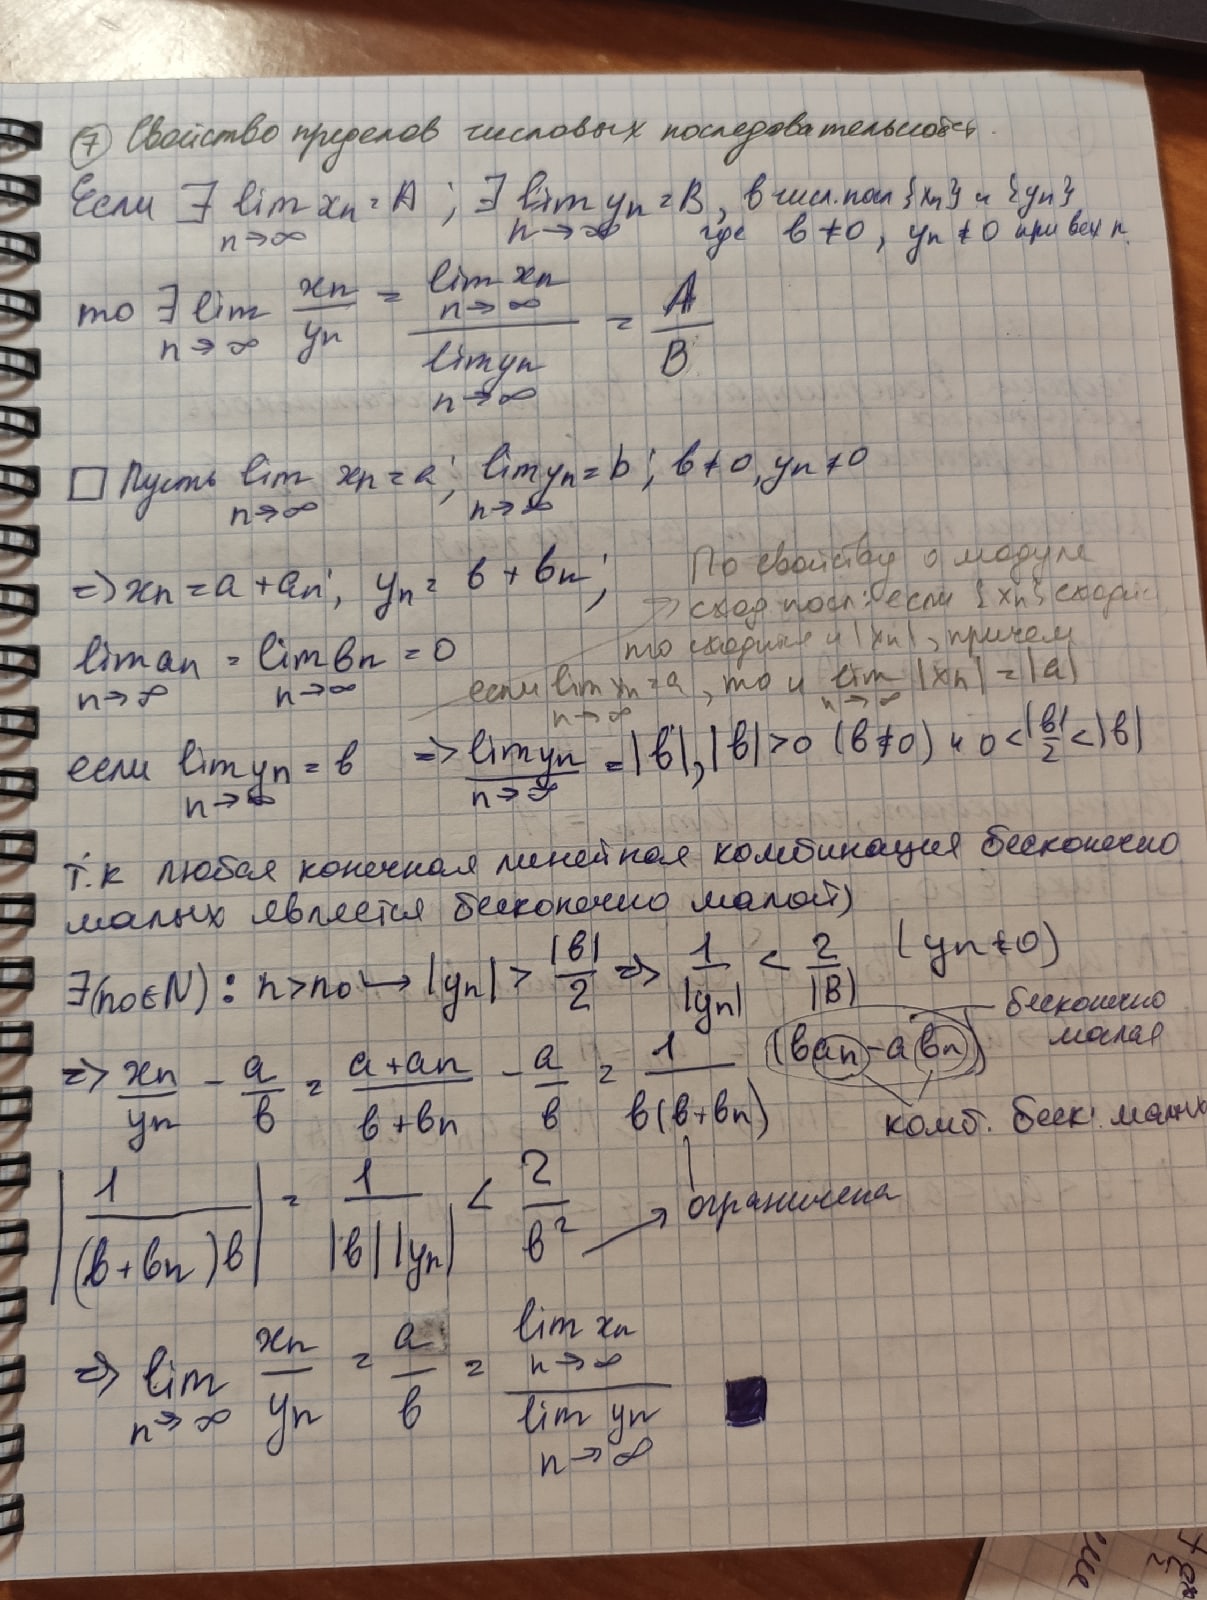 ⑦ Свойство пределов числовых последовательностей.
Если ∃ lim xn = A ; ∃ lim yn = B, в числ. посл {xn} и {yn},
n→∞ n→∞ где в ≠ 0, yn ≠ 0 при всех n.
то ∃ lim xn/yn = lim xn / lim yn = A/B
n→∞ n→∞ n→∞
□ Пусть lim xn = a; lim yn = b; в ≠ 0, yn ≠ 0
n→∞ n→∞
=> xn = a + an; yn = в + вn;
По свойству о модуле
сход. посл: если {xn} сходит
то сходится и |xn|, причем
если lim xn = a, то и lim |xn| = |a|
n→∞ n→∞
lim an = lim вn = 0
n→∞ n→∞
если lim yn = в => lim yn = |в|, |в| > 0 (в ≠ 0) и 0 < |в|/2 < |в|
n→∞ n→∞
т.к любая конечная линейная комбинация бесконечно
малых является бесконечно малой)
∃(n0∈N): n > n0 ↦ |yn| > |в|/2 => 1/|yn| < 2/|B| (yn ≠ 0)
бесконечно
малая
=> xn/yn - a/в = (a+an)/(в+вn) - a/в = 1/(в(в+вn)) (вan - aвn)
комб. беск. малых
|1/((в+вn)в)| = 1/(|в||yn|) < 2/в² → ограничена
=> lim xn/yn = a/в = lim xn / lim yn ■
n→∞ n→∞ n→∞